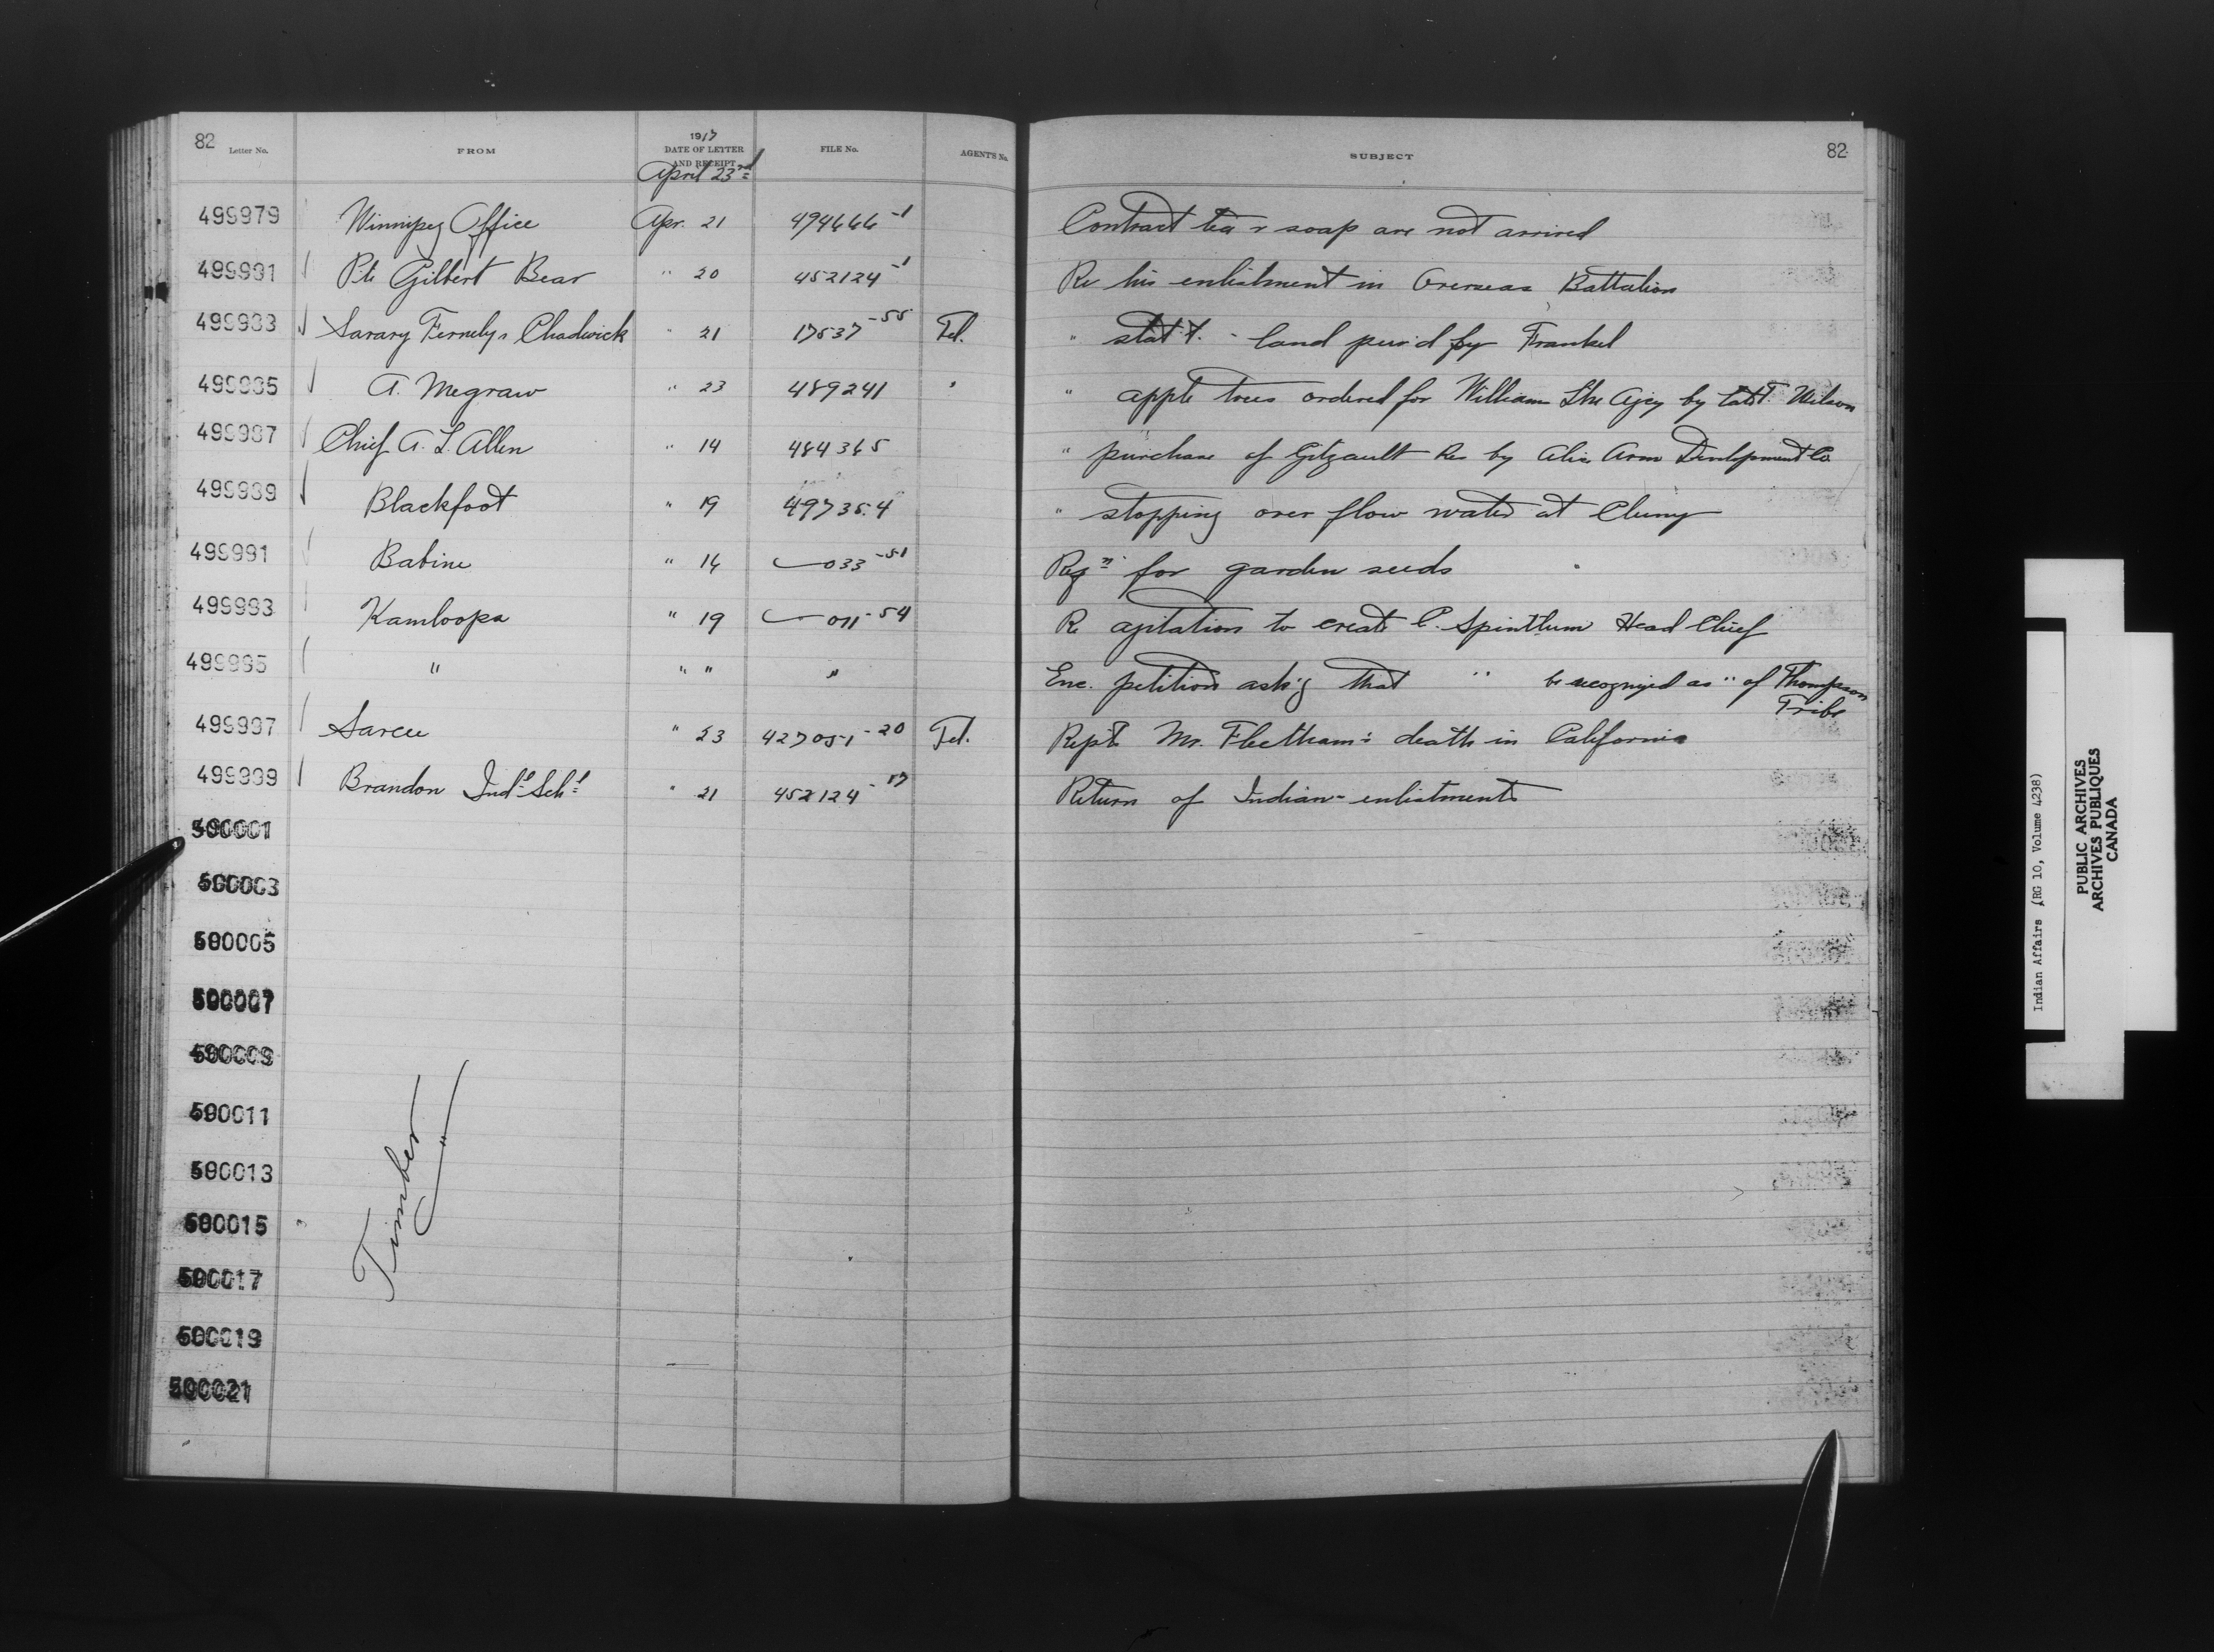 82 Letter No. FROM 1917 DATE OF LETTER AND RECEIPT FILE No. AGENT'S No. SUBJECT 82
April 23rd
499979 Winnipeg Office Apr. 21 494666-1 Contract tea & soap are not arrived
499981 Pte Gilbert Bear " 20 452124-1 Re his enlistment in Overseas Battalion
499983 Fernely & Chadwick " 21 17537-55 Tel. " stat't. - land pur'd by Frankel
499985 A. Megraw " 23 489241 " " apple trees ordered for William Lke Agcy by late T. Wilson
499987 Chief A. L. Allen " 14 484365 " purchase of Gitzault Res by Alice Arm Development Co
499989 Blackfoot " 19 497354 " stopping over flow water at Cluny
499991 Babine " 14 033-51 Reqn for garden seeds
499993 Kamloops " 19 011-54 Re agitation to create C. Spinthum Head Chief
499995 " " " " Enc. petition ask'g that " be recognized as " of Thompson Tribe
499997 Sarcee " 23 427051-20 Tel. Rept's Mr. Fleetham's death in California
499999 Brandon Indl Schl " 21 452124-17 Return of Indian enlistments
500001
500003
500005
500007
500009
500011
500013
500015
500017
500019
500021
Timber
Indian Affairs (RG 10, Volume 4238)
PUBLIC ARCHIVES
ARCHIVES PUBLIQUES
CANADA